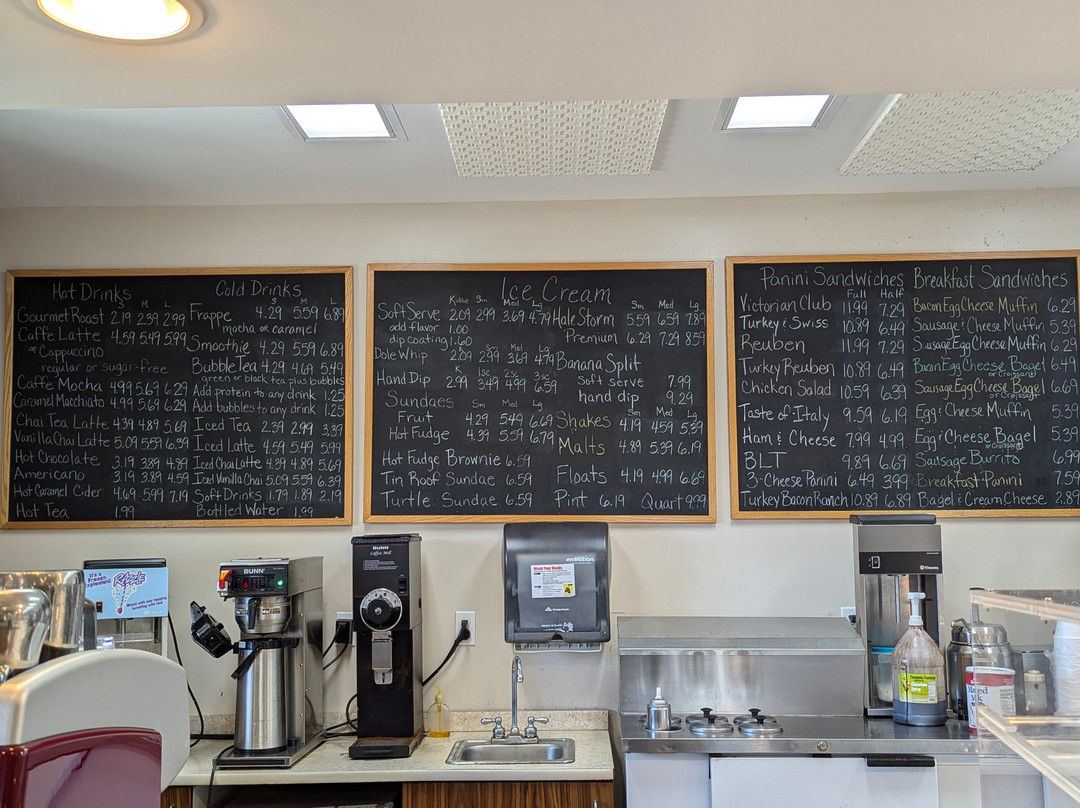 Hot Drinks
S M L
Gourmet Roast 2.19 2.39 2.99
Caffe Latte 4.59 5.49 5.99
or Cappuccino
regular or sugar-free
Caffe Mocha 4.99 5.69 6.29
Caramel Macchiato 4.99 5.69 6.29
Chai Tea Latte 4.39 4.89 5.69
Vanilla Chai Latte 5.09 5.59 6.39
Hot Chocolate 3.19 3.89 4.89
Americano 3.19 3.89 4.59
Hot Caramel Cider 4.69 5.99 7.19
Hot Tea 1.99
Cold Drinks
S M L
Frappe 4.29 5.59 6.89
mocha or caramel
Smoothie 4.29 5.59 6.89
Bubble Tea 4.29 4.69 5.49
green or black tea plus bubbles
Add protein to any drink 1.25
Add bubbles to any drink 1.25
Iced Tea 2.39 2.99 3.39
Iced Latte 4.59 5.49 5.99
Iced Chai Latte 4.39 4.89 5.69
Iced Vanilla Chai 5.09 5.59 6.39
Soft Drinks 1.79 1.89 2.19
Bottled Water 1.99
Ice Cream
Kiddie Sm Med Lg
Soft Serve 2.09 2.99 3.69 4.79
add flavor 1.00
dip coating 1.60
Dole Whip 2.09 2.99 3.69 4.79
1sc 2sc 3sc
Hand Dip 2.99 3.49 4.99 6.59
Sundaes Sm Med Lg
Fruit 4.29 5.49 6.69
Hot Fudge 4.39 5.59 6.79
Hot Fudge Brownie 6.59
Tin Roof Sundae 6.59
Turtle Sundae 6.59
Sm Med Lg
Hale Storm 5.59 6.59 7.89
Premium 6.29 7.29 8.59
Banana Split
soft serve 7.99
hand dip 9.29
Sm Med Lg
Shakes 4.19 4.59 5.39
Malts 4.89 5.39 6.19
Floats 4.19 4.99 6.69
Pint 6.19 Quart 9.99
Panini Sandwiches
Full Half
Victorian Club 11.99 7.29
Turkey & Swiss 10.89 6.49
Reuben 11.99 7.29
Turkey Reuben 10.89 6.49
Chicken Salad 10.59 6.39
Taste of Italy 9.59 6.19
Ham & Cheese 7.99 4.99
BLT 9.89 6.69
3-Cheese Panini 6.49 3.99
Turkey Bacon Ranch 10.89 6.89
Breakfast Sandwiches
Bacon Egg Cheese Muffin 6.29
Sausage & Cheese Muffin 5.39
Sausage Egg Cheese Muffin 6.29
Bacon Egg Cheese Bagel 6.49
or Croissant
Sausage Egg Cheese Bagel 6.69
or Croissant
Egg & Cheese Muffin 5.39
Egg & Cheese Bagel 5.39
or Croissant
Sausage Burrito 6.99
Breakfast Panini 7.59
Bagel & Cream Cheese 2.89
BUNN
BUNN
Coffee Mill
enMotion
Wash Your Hands
Vitamix